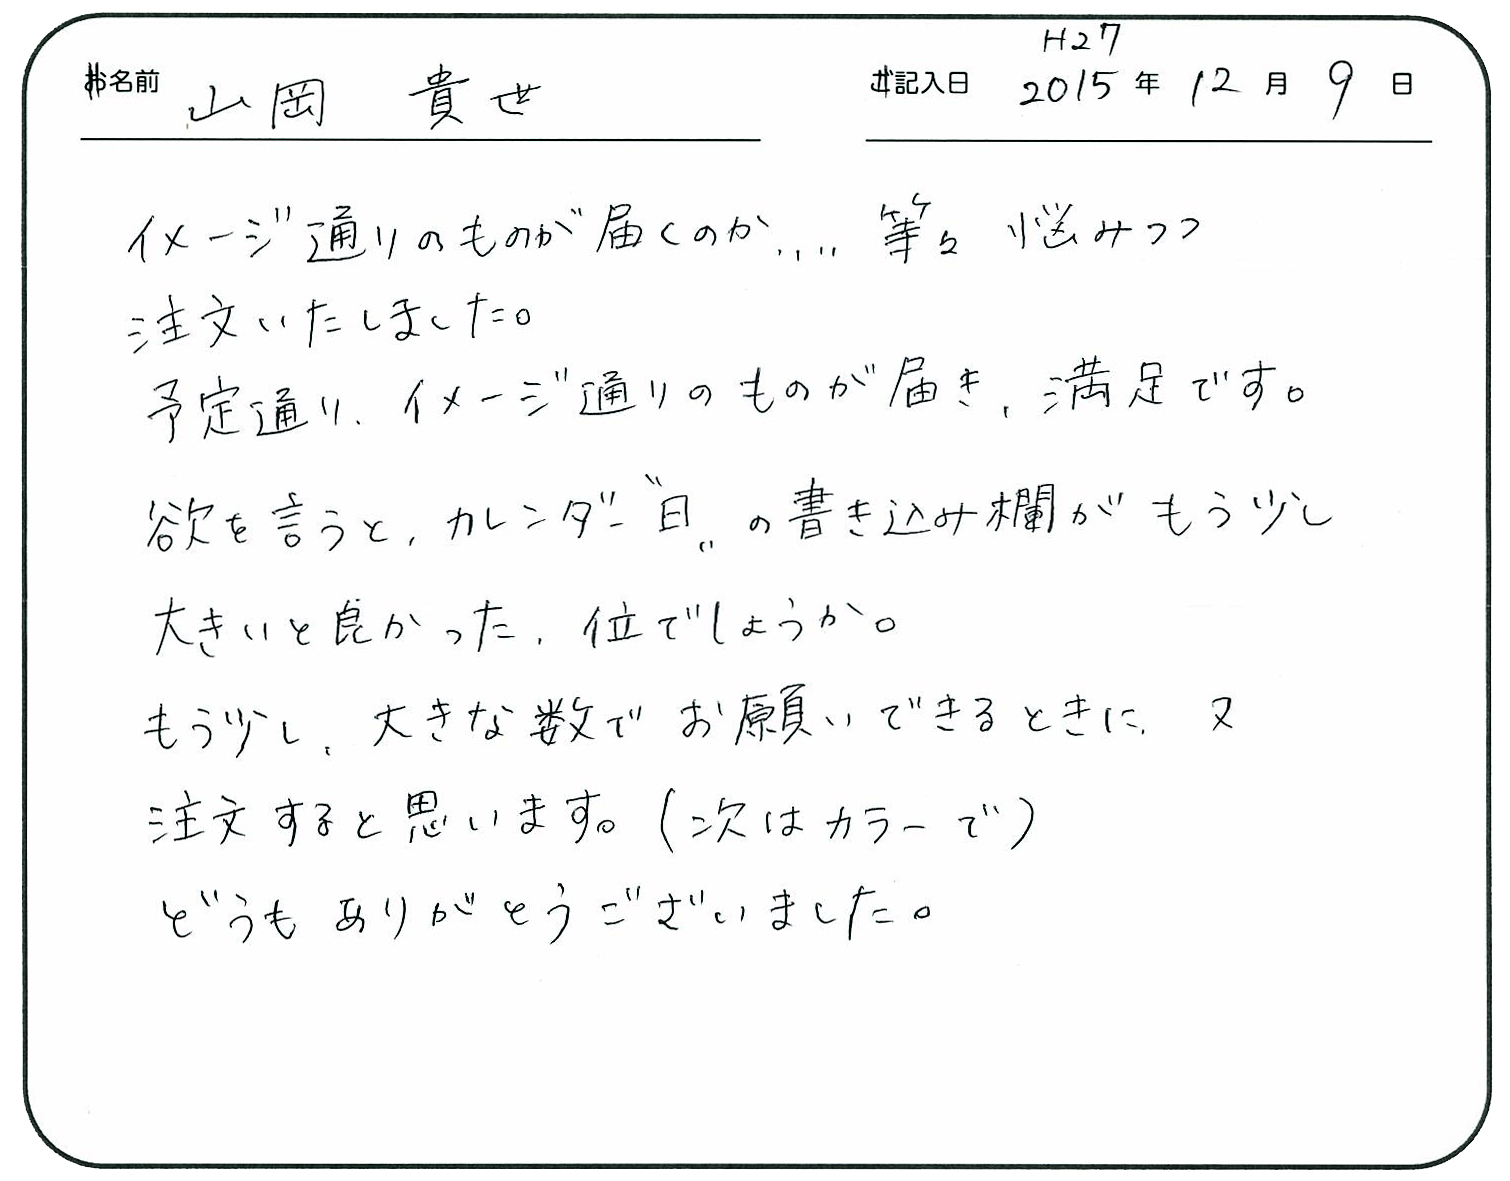 お名前 山岡 貴世
H27
ご記入日 2015年12月9日
イメージ通りのものが届くのか.... 等々 悩みつつ
注文いたしました。
予定通り、イメージ通りのものが届き、満足です。
欲を言うと、カレンダー〝日〟の書き込み欄がもう少し
大きいと良かった、位でしょうか。
もう少し、大きな数でお願いできるときに、又
注文すると思います。(次はカラーで)
どうもありがとうございました。